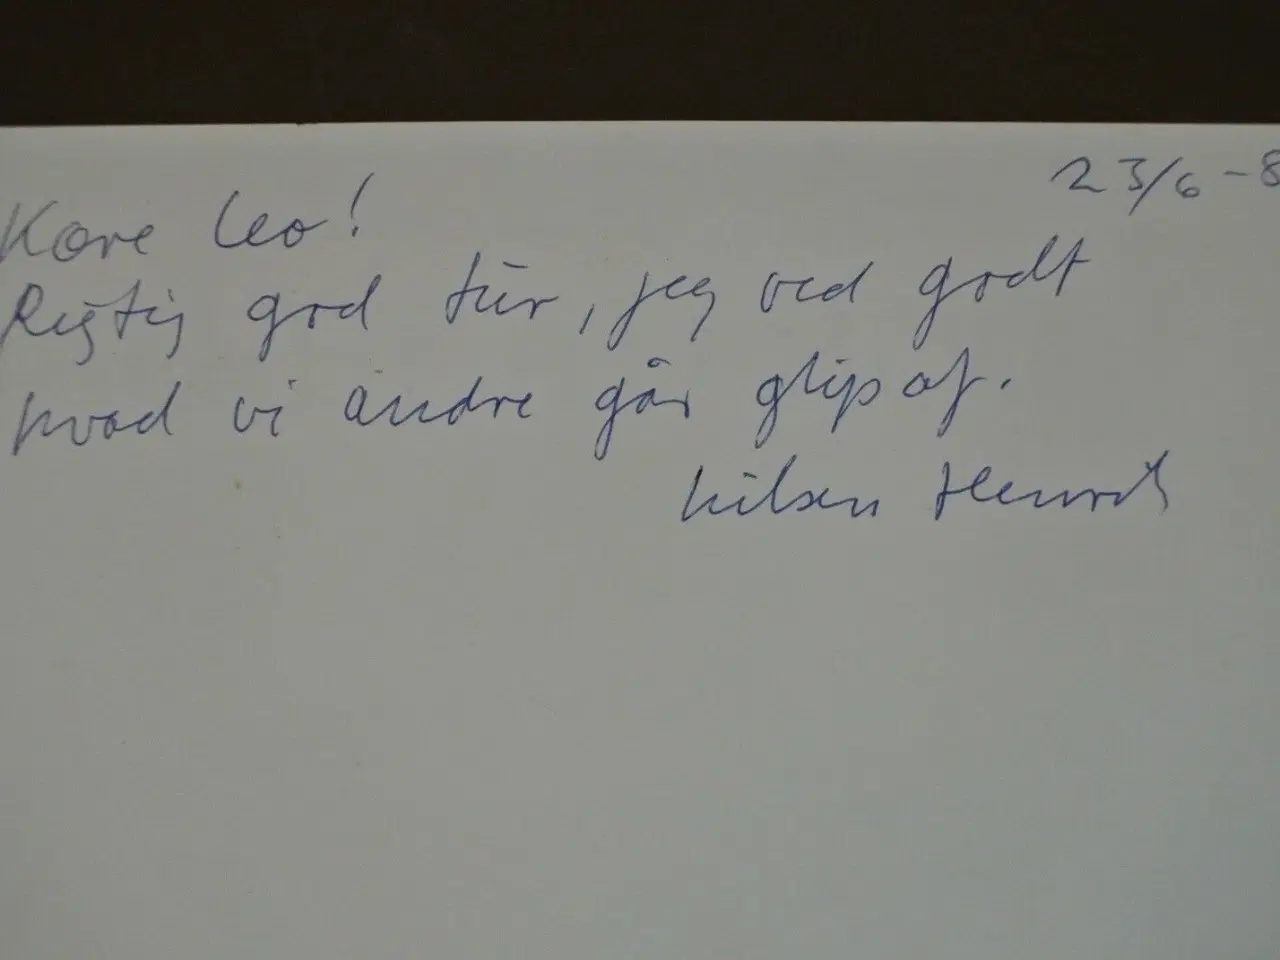 23/6 - 8
Kære Leo!
Rigtig god tur, jeg ved godt
hvad vi andre går glip af.
hilsen Henrik